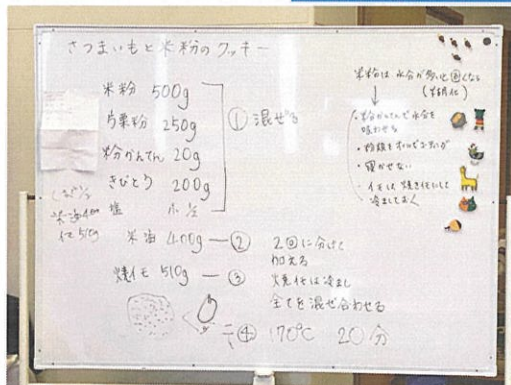 さつまいもと米粉のクッキー
米粉 500g
片栗粉 250g
粉かんてん 20g
きびとう 200g
塩 小½
① 混ぜる
米油 400g ー ②
2回に分けて
加える
焼イモ 510g ー ③
焼イモは冷まし
全てを混ぜ合わせる
④ 170℃ 20分
米粉は水分が多いと固くなる
(糊化)
・粉かんてんで水分を
吸わせる
・寝かせない
・イモは焼き芋にして
冷ましておく